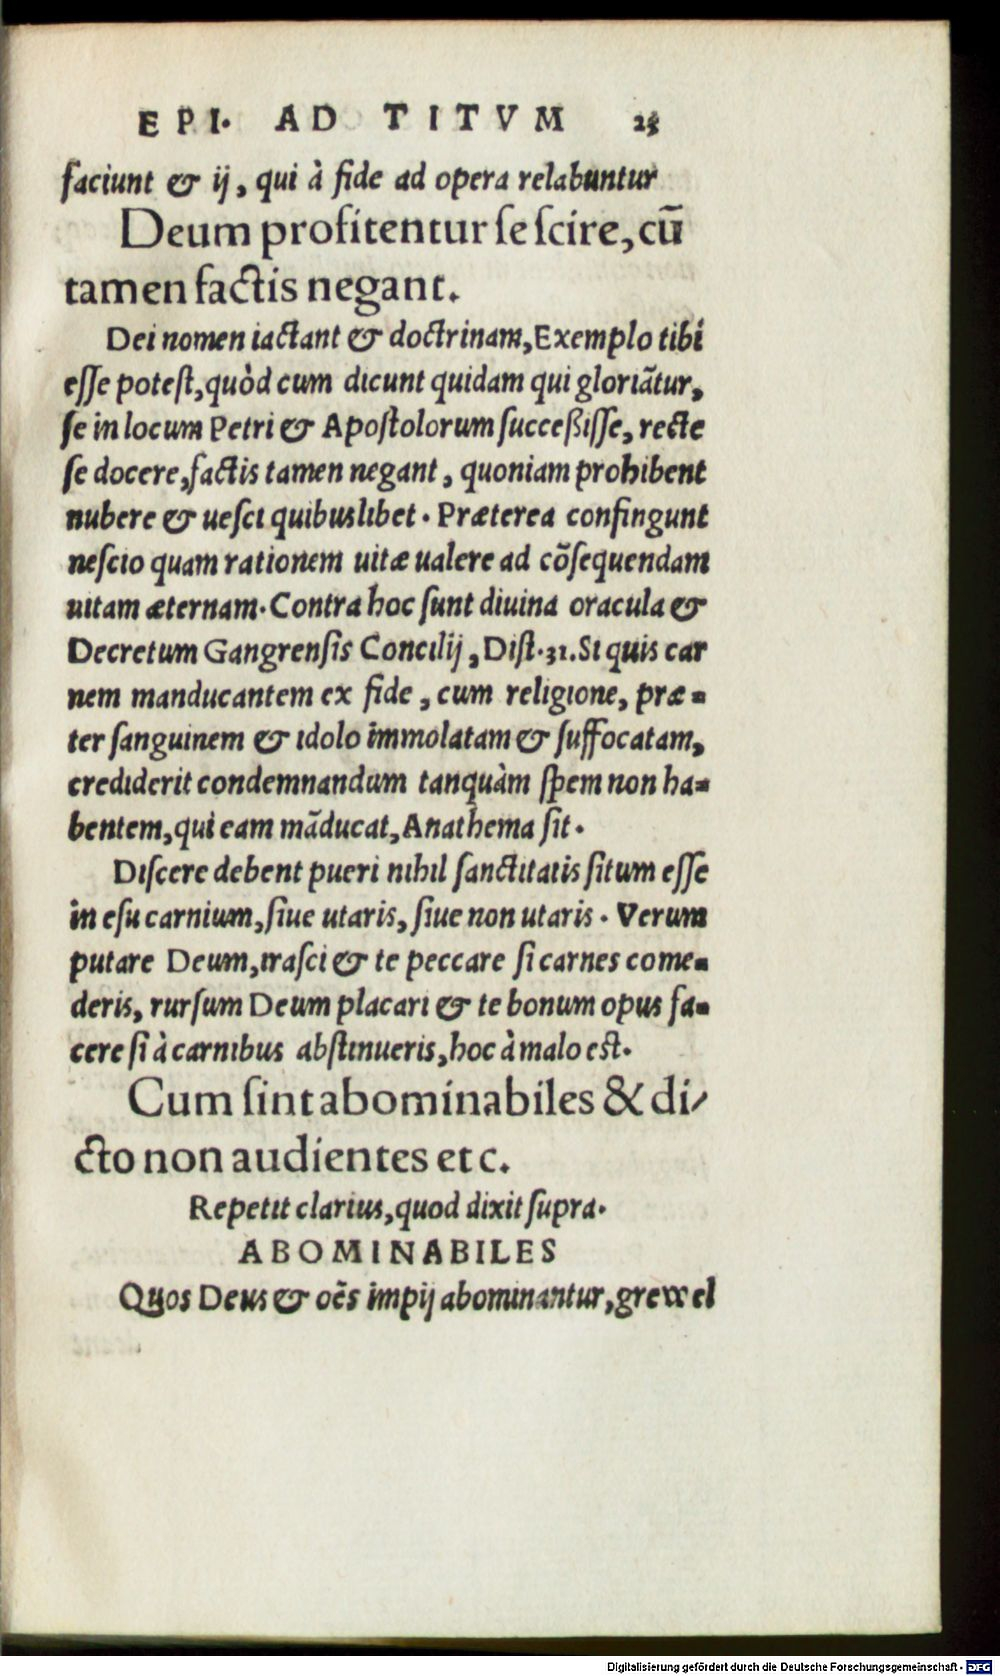 EPI. AD TITVM 25
faciunt & ij, qui à fide ad opera relabuntur
Deum profitentur ſe ſcire, cū
tamen factis negant.
Dei nomen iactant & doctrinam, Exemplo tibi
eſſe poteſt, quòd cum dicunt quidam qui gloriãtur,
ſe in locum Petri & Apoſtolorum ſucceßiſſe, recte
ſe docere, factis tamen negant, quoniam prohibent
nubere & ueſci quibuslibet. Præterea confingunt
neſcio quam rationem uitæ ualere ad cõſequendam
uitam æternam. Contra hoc ſunt diuina oracula &
Decretum Gangrenſis Concilij, Diſt. 31. Si quis car
nem manducantem ex fide, cum religione, præ-
ter ſanguinem & idolo immolatam & ſuffocatam,
crediderit condemnandum tanquàm ſpem non ha-
bentem, qui eam mãducat, Anathema ſit.
Diſcere debent pueri nihil ſanctitatis ſitum eſſe
in eſu carnium, ſiue utaris, ſiue non utaris. Verum
putare Deum, iraſci & te peccare ſi carnes come-
deris, rurſum Deum placari & te bonum opus fa-
cere ſi à carnibus abſtinueris, hoc à malo eſt.
Cum ſint abominabiles & di-
cto non audientes etc.
Repetit clarius, quod dixit ſupra.
ABOMINABILES
Quos Deus & oẽs impij abominantur, grewel
Digitalisierung gefördert durch die Deutsche Forschungsgemeinschaft - DFG